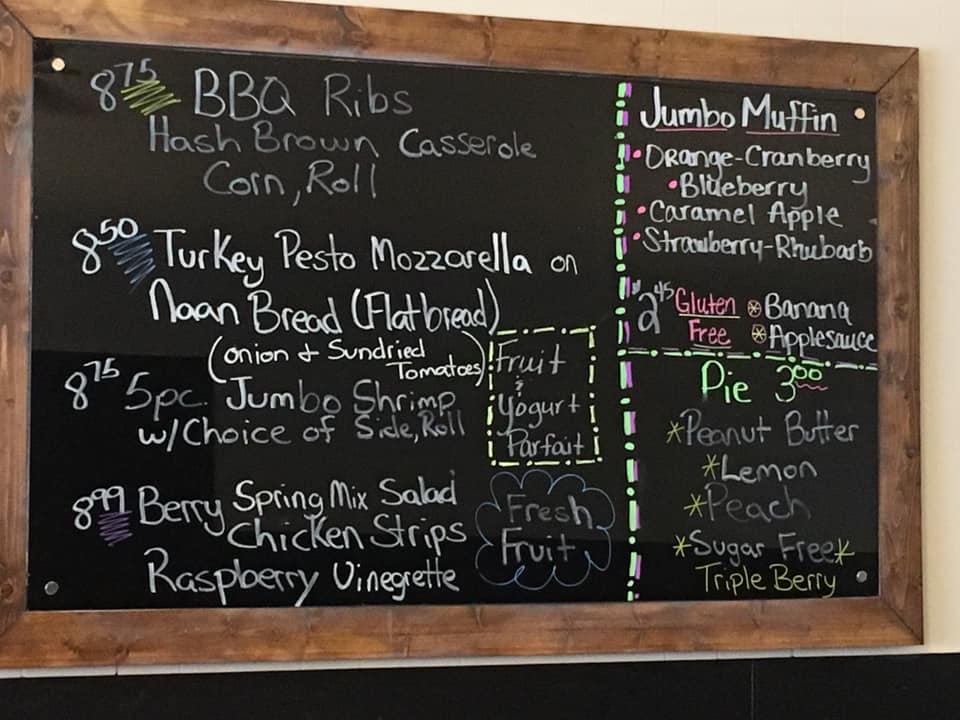 8.75 BBQ Ribs
Hash Brown Casserole
Corn, Roll
8.50 Turkey Pesto Mozzarella on
Naan Bread (Flatbread)
(Onion & Sundried
Tomatoes)
8.75 5pc. Jumbo Shrimp
w/Choice of Side, Roll
8.99 Berry Spring Mix Salad
Chicken Strips
Raspberry Vinegrette
Fruit
&
Yogurt
Parfait
Fresh
Fruit
Jumbo Muffin
• Orange-Cranberry
• Blueberry
• Caramel Apple
• Strawberry-Rhubarb
$2.45 Gluten Free
Banana
Applesauce
Pie 3.00
*Peanut Butter
*Lemon
*Peach
*Sugar Free*
Triple Berry